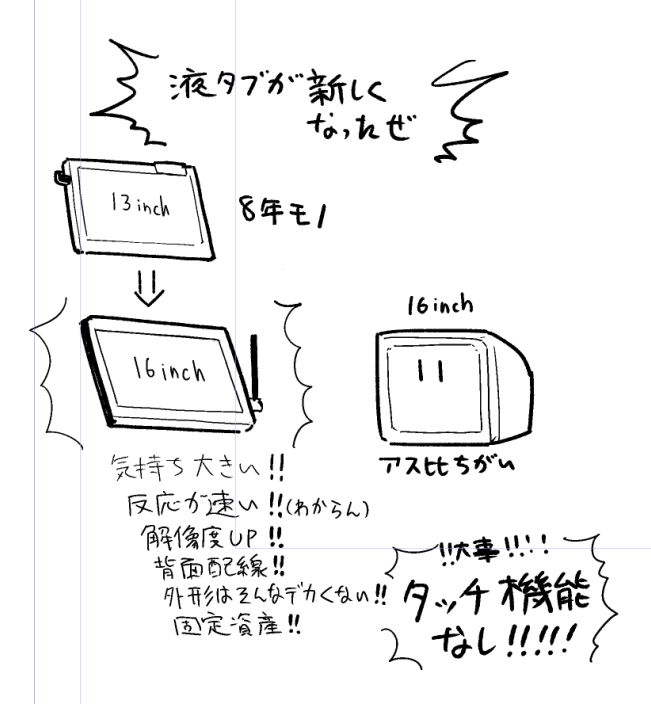 液タブが新しく
なったぜ
13inch
8年モノ
16inch
16inch
アス比ちがい
気持ち大きい!!
反応が速い!!(わからん)
解像度UP!!
背面配線!!
外形はそんなデカくない!!
固定資産!!
!!大事!!!!
タッチ機能
なし!!!!!